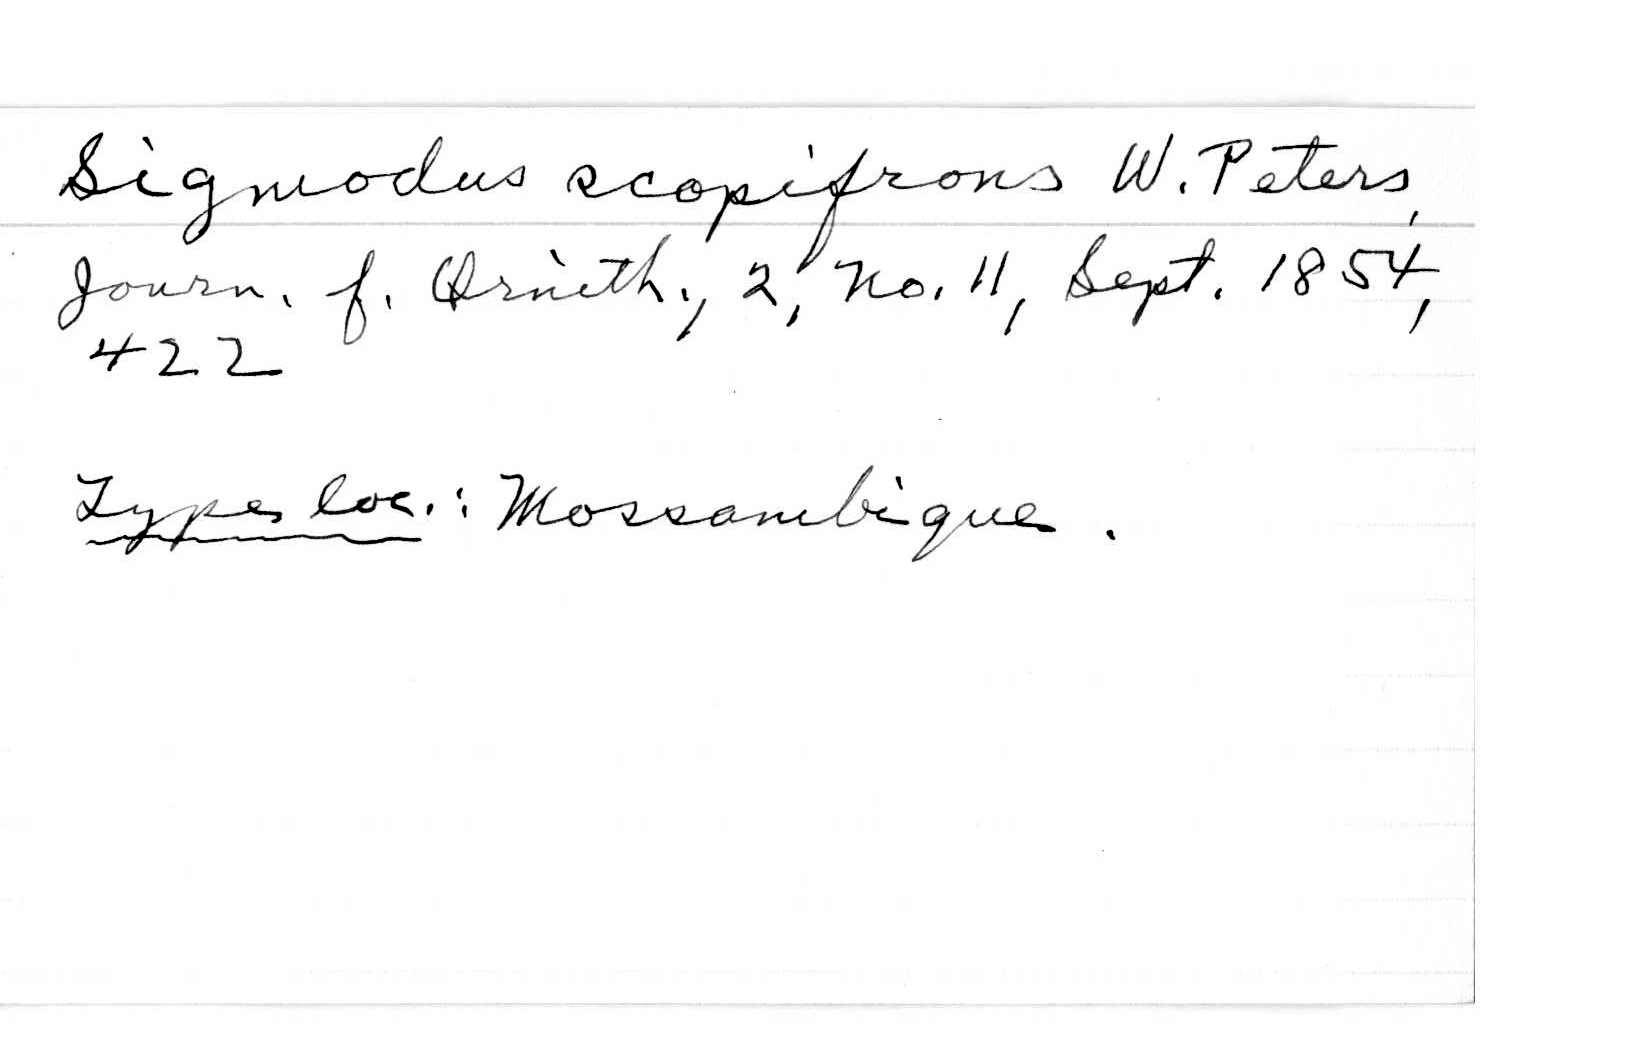 Sigmodus scopifrons W. Peters,
Journ. f. Ornith., 2, No. 11, Sept. 1854,
422
Type loc.: Mossambique.